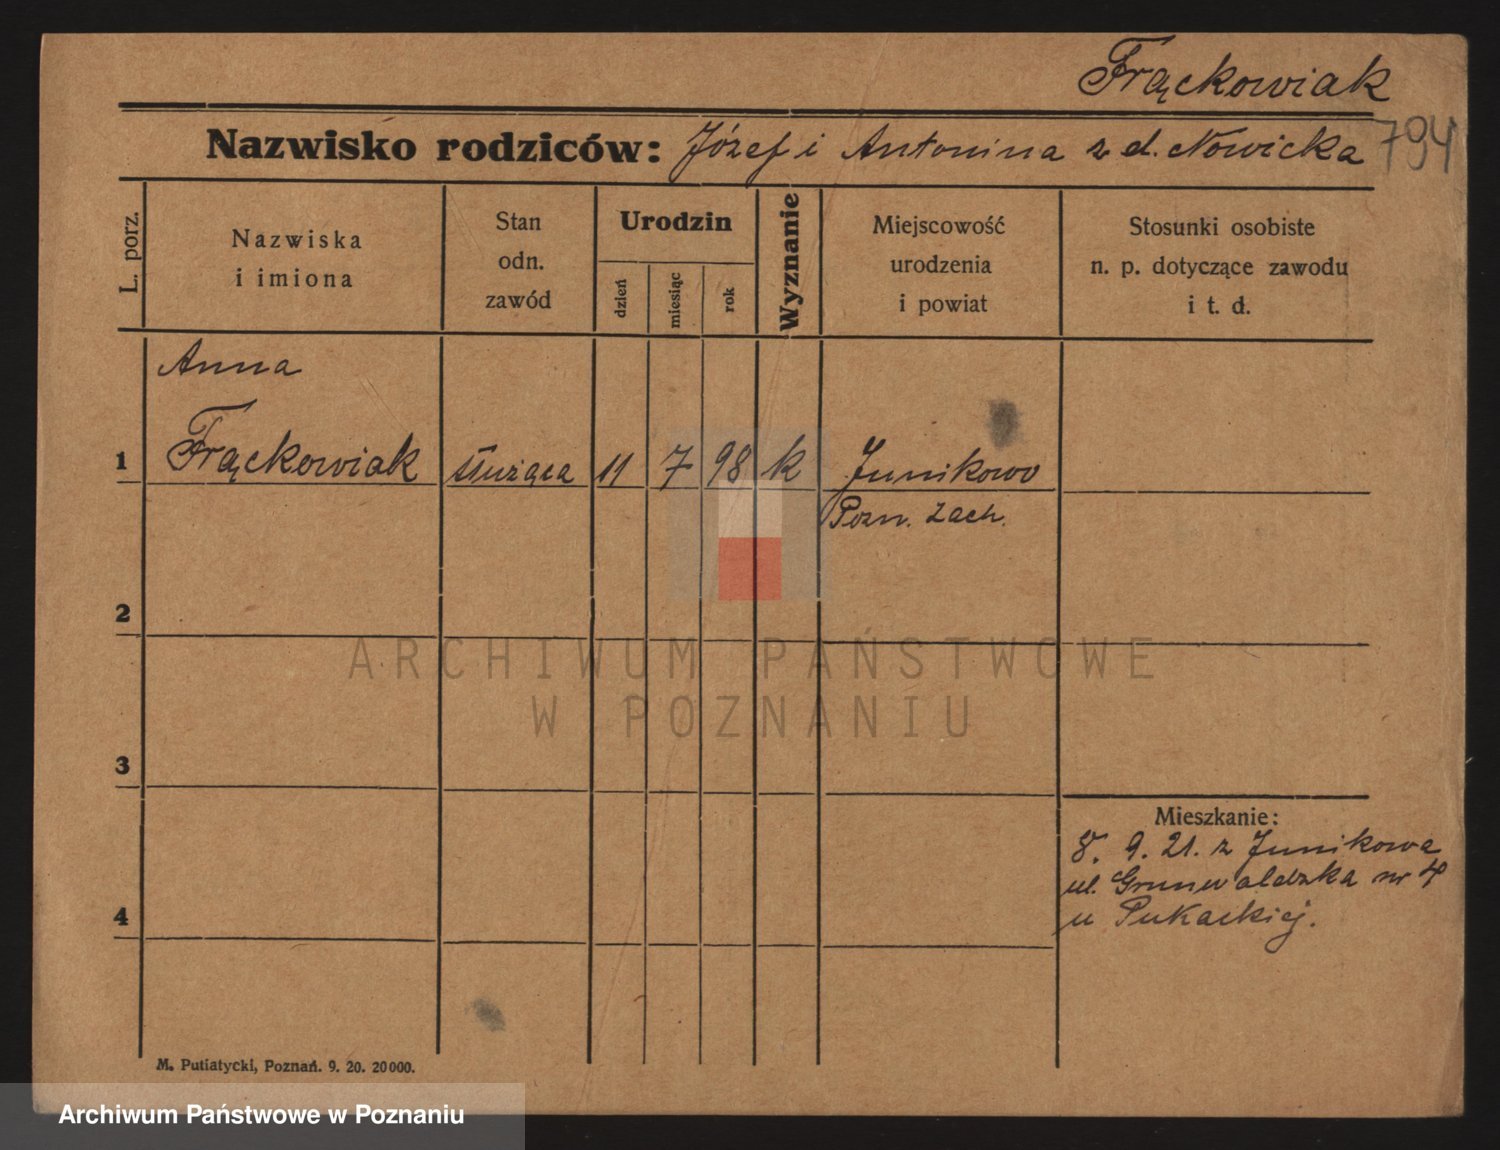 Frąckowiak
Nazwisko rodziców: Józef i Antonina z d. Nowicka 794
L. porz.
Nazwiska
i imiona
Stan
odn.
zawód
Urodzin
dzień
miesiąc
rok
Wyznanie
Miejscowość
urodzenia
i powiat
Stosunki osobiste
n. p. dotyczące zawodu
i t. d.
Anna
1 Frąckowiak służąca 11 7 98 k Junikowo
Pozn. Zach.
2
ARCHIWUM PAŃSTWOWE
W POZNANIU
3
Mieszkanie:
8. 9. 21. z Junikowa
ul. Grunwaldzka nr 4
u Pukackiej.
4
M. Putiatycki, Poznań. 9. 20. 20000.
Archiwum Państwowe w Poznaniu